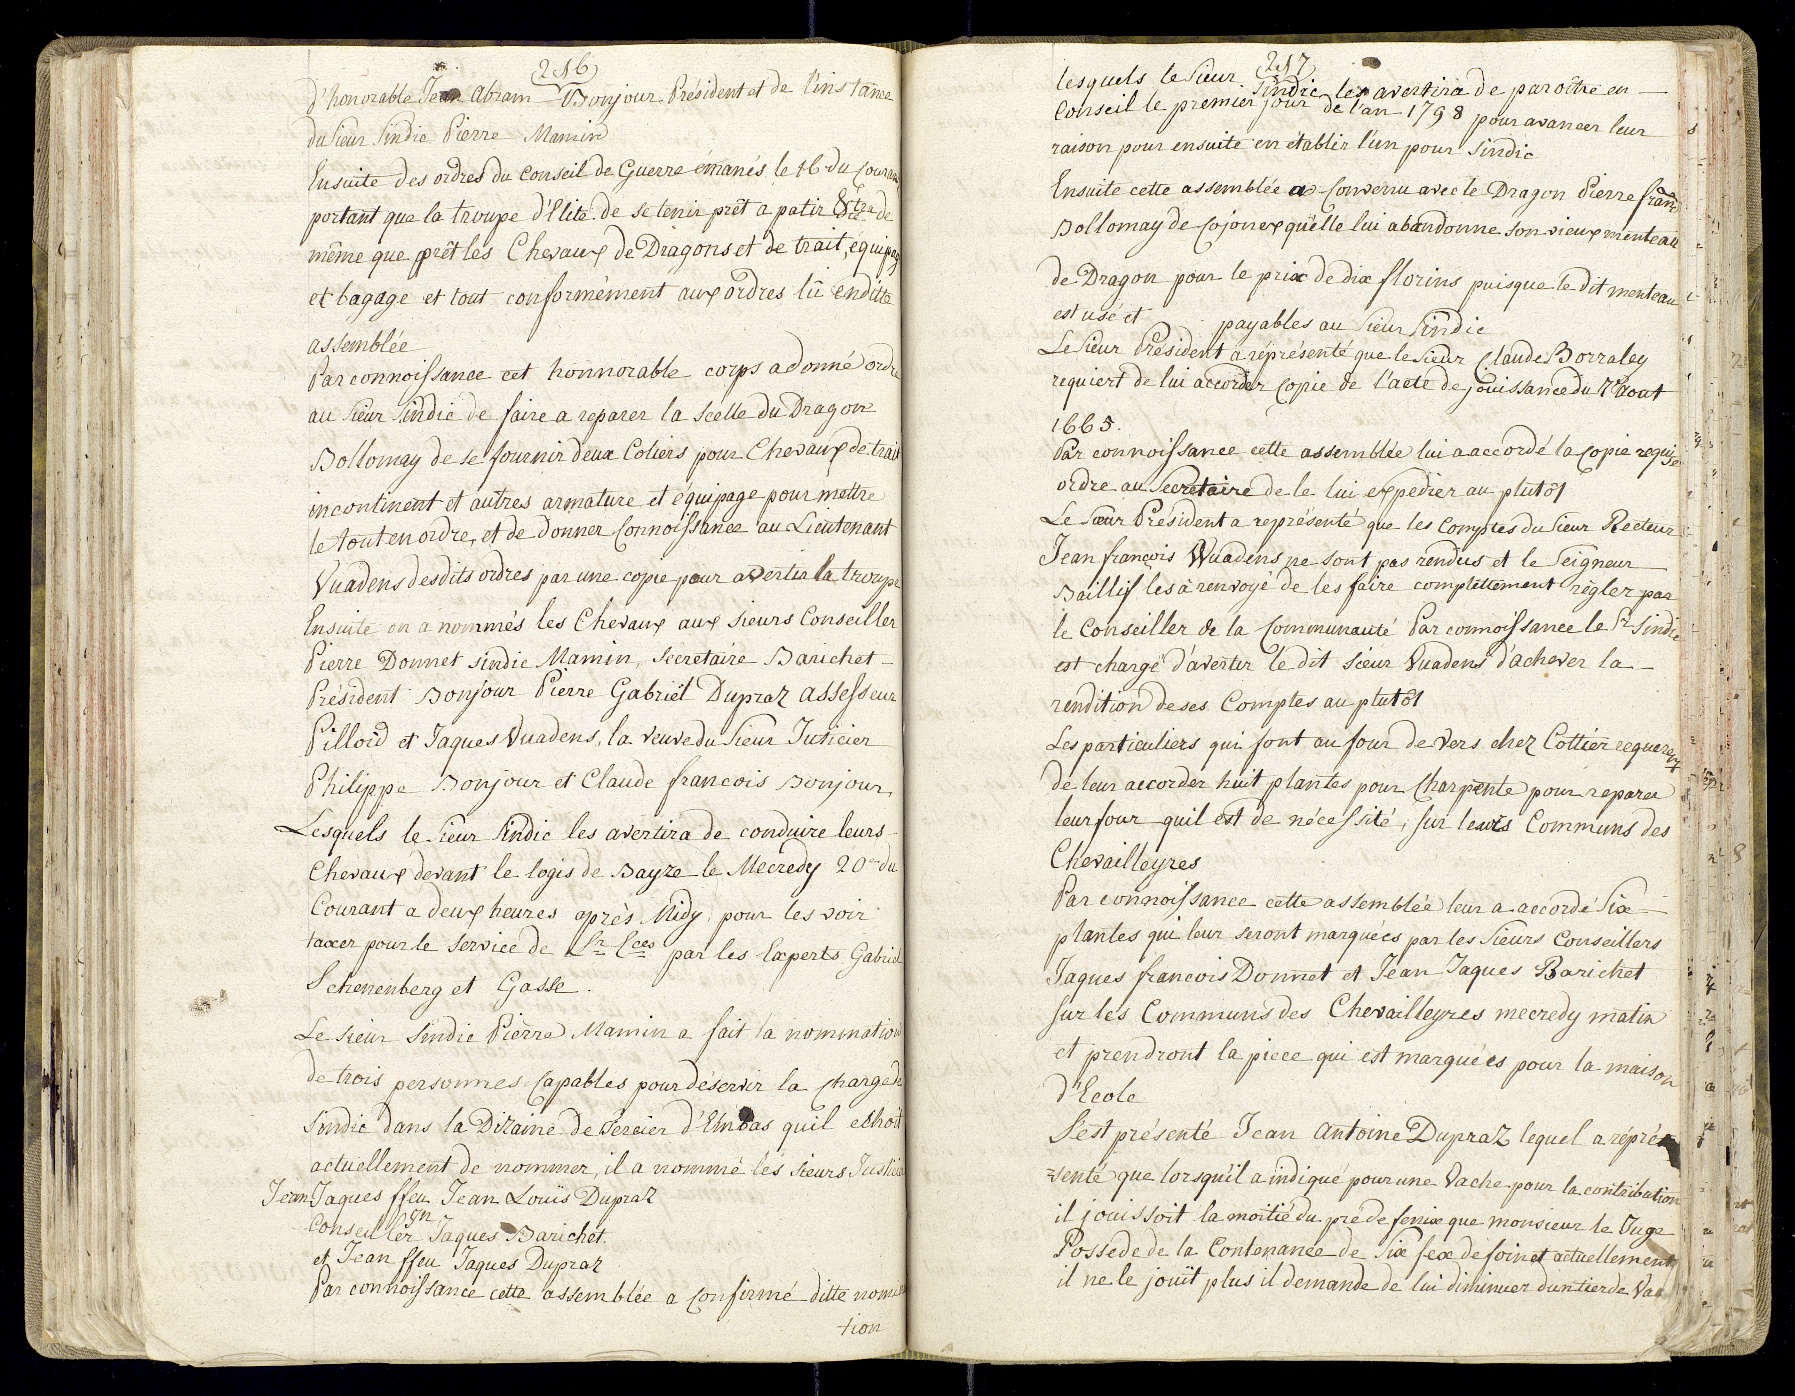 216
d'honorable Jean Abram Bonjour Président et de l'instance
du Sieur Sindic Pierre Mamin
Ensuite des ordres du Conseil de Guerre émanés le 16 du Courant
portant que la troupe d'Elite de se tenir prêt a patir &ctra de
même que prêt les Chevaux de Dragons et de trait, équipage
et bagage et tout conformément aux ordres lû enditte
assemblée
Par connoissance cet honnorable corps a donné ordre
au Sieur Sindic de faire a reparer la Scelle du Dragon
Dollomay de se fournir deux Coliers pour Chevaux de trait
incontinent et autres armature et équipage pour mettre
le tout en ordre, et de donner Connoissance au Lieutenant
Vuadens desdits ordres par une copie pour avertir la troupe
Ensuite on a nommés les Chevaux aux Sieurs Conseiller
Pierre Donnet Sindic Mamin, Secretaire Barichet
Président Bonjour Pierre Gabriël Dupraz assesseur
Pilloid et Jaques Vuadens, la veuve du Sieur Justicier
Philippe Bonjour et Claude francois Bonjour,
Lesquels le Sieur Sindic les avertira de conduire leurs
Chevaux devant le logis de Bayze le Mecredy 20e du
Courant a deux heures après Midy pour les voir
taxer pour le service de Lr Lces par les Experts Gabriel
Schenenberg et Gasse.
Le Sieur Sindic Pierre Mamin a fait la nomination
de trois personnes Capables pour déservir la charge de
Sindic dans la Dizaine de Sercier d'Enbas quil echoit
actuellement de nommer, il a nommé les Sieurs Justicier
Jean Jaques ffeu Jean Louïs Dupraz
Conseiller Jn Jaques Barichet.
et Jean ffeu Jaques Dupraz
Par connoissance cette assemblée a confirmé ditte nomina
tion
217
lesquels le Sieur Sindic les avertira de paroître en
Conseil le premier jour de l'an 1798 pour avancer leur
raison pour ensuite en établir l'un pour Sindic
Ensuite cette assemblée a Convenu avec le Dragon Pierre franc
Dollomay de Cojonex qu'elle lui abandonne son vieux menteau
de Dragon pour le prix de dix florins puisque le dit menteau
est usé et payables au Sieur Sindic
Le Sieur Président a réprésenté que le Sieur Claude Borraley
requiert de lui accorder Copie de l'acte de jouissance du 7e aout
1665.
Par connoissance cette assemblée lui a accordé la Copie requise
ordre au Secretaire de le lui expedier au plutôt
Le Sieur Président a représenté que les Comptes du Sieur Recteur
Jean françois Vuadens ne sont pas rendus et le Seigneur
Baillif les à renvoyé de les faire complettement régler par
le Conseiller de la Communauté Par connoissance le Sr Sindic
est chargé d'avertir le dit Sieur Vuadens d'achever la
rendition de ses Comptes au plutôt
Les particuliers qui font au four de vers chez Cottier requerent
de leur accorder huit plantes pour Charpente pour reparer
leur four quil est de nécessité, sur leurs Communs des
Chevailleyres
Par connoissance cette assemblée leur a accordé Six
plantes qui leur seront marquées par les Sieurs Conseillers
Jaques francois Donnet et Jean Jaques Barichet
sur les Communs des Chevailleyres mecredy matin
et prendront la piece qui est marquées pour la maison
d'Ecole
S'est présenté Jean Antoine Dupraz lequel a répré
senté que lorsqu'il a indiqué pour une Vache pour la contribution
il jouissoit la moitié du pré de fenix que monsieur le Juge
Possede de la Contenance de Six fex de foin et actuellement
il ne le jouït plus il demande de lui diminuer d'un tier de Vac